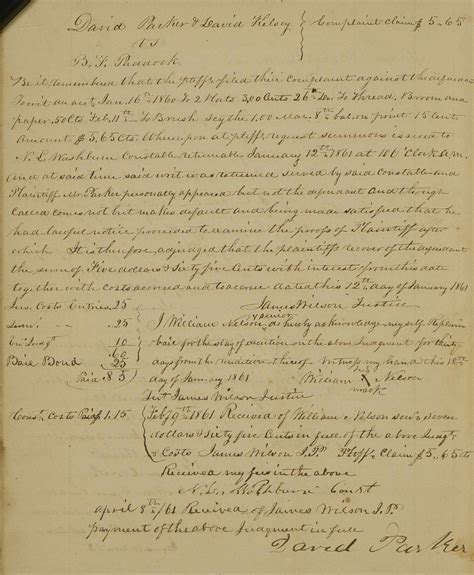 David Parker & David Kelsey } Complaint Claim $5.65
VS
B. F. Paddock
Be it remembered that the ptffs filed their Complaint against the defendant
Towit on acct, Jan. 16th 1860 To 2 Hats 3,00 Cents 26th Do. To Thread, Broom and
paper 50 Cts Feb. 11th To Brush Scythe 1.00 Mar. 8th 15 Cents
Amount $5,65 Cts. Whereupon at ptiff, request summons issued to
N. L. Washburn Constable returnable January 12th 1861 at 10 O'Clock A.M.
and at said time said writ was returned served by said Constable and
Plaintiff Mr. Parker personally appeared but not the defendant and though
Called comes not but makes default and being made satisfied that he
had lawful notice proceeded to examine the proofs of Plaintiff after
which It is therefore adjudged that the plaintiffs recover of the defendant
the sum of Five dollars & Sixty five Cents with interest from this date
together with Costs accrued and to accrue dated this 12th day of January 1861
Jus. Costs Entries .25 James Wilson Justice
Sum' " " .25 I William Nelson senior do hereby acknowledge myself Replevin
Judgt 10 baie for the stay of execution on the above Judgment for thirty
60 days from the rendition thereof Witness my hand this 18th
Baie Bond 25 day of January 1861 William his X mark Nelson
Paid 85 James Wilson Justice
Const. Costs Paid 1.15 Feby 9th 1861 Received of William Nelson sen'r seven
dollars & Sixty five Cents in full of the above Judgt
& Costs James Wilson J.P. Ptoff's Claim $5.65
Received my fees in the above
N. L. Washburn Const
april 8th/61 Received of James Wilson J.P.
payment of the above Judgment in full
David Parker